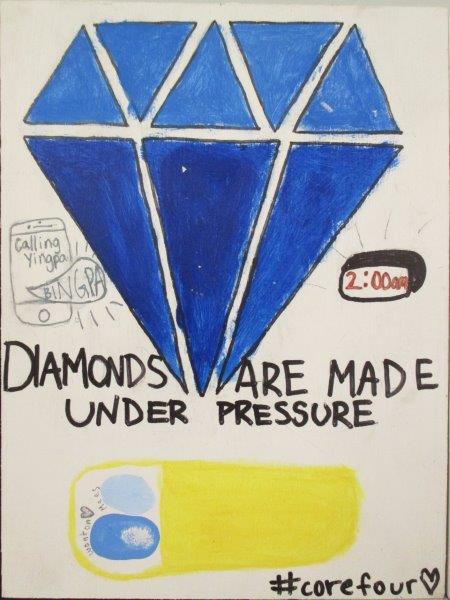 calling
Yingpa
BINGPA
2:00am
DIAMONDS ARE MADE
UNDER PRESSURE
#corefour♡